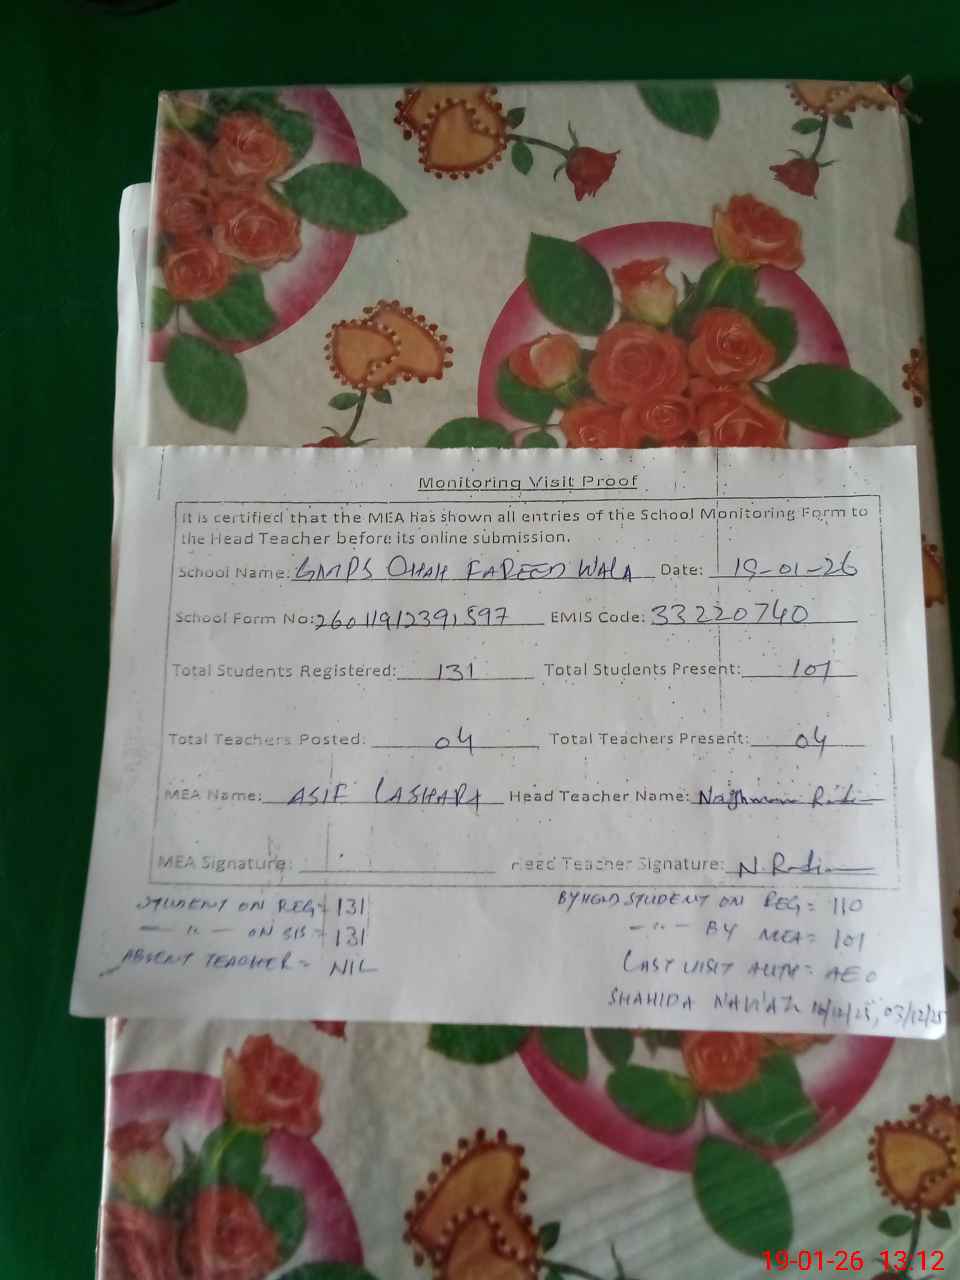 Monitoring Visit Proof
It is certified that the MEA has shown all entries of the School Monitoring Form to
the Head Teacher before its online submission.
School Name: GMPS CHAH FAREED WALA Date: 19-01-26
School Form No: 26011912391597 EMIS Code: 33220740
Total Students Registered: 131 Total Students Present: 101
Total Teachers Posted: 04 Total Teachers Present: 04
MEA Name: ASIF LASHARI Head Teacher Name:
MEA Signature: Head Teacher Signature:
STUDENT ON REG = 131 BY HEAD STUDENT ON REG = 110
— " — ON SIS = 131 — " — BY MEA = 101
ABSENT TEACHER = NIL LAST VISIT AUTH = AEO
SHAHIDA NAWAZ 03/12/25
19-01-26 13:12